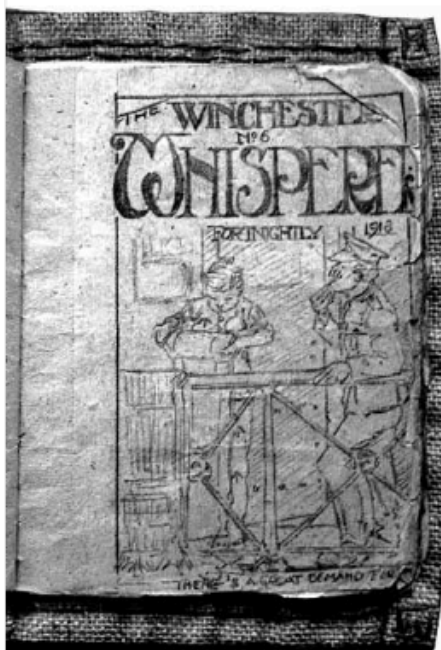 THE WINCHESTER
No 6
WHISPERER
FORTNIGHTLY 1918
THERE'S A GREAT DEMAND FOR